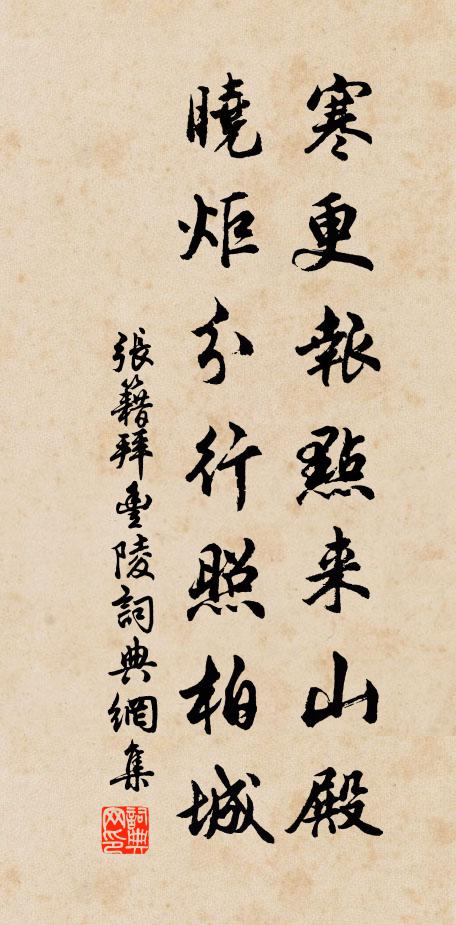 寒更報點来山殿
曉炬分行照柏城
張籍拜豊陵詞典網集
詞典网印